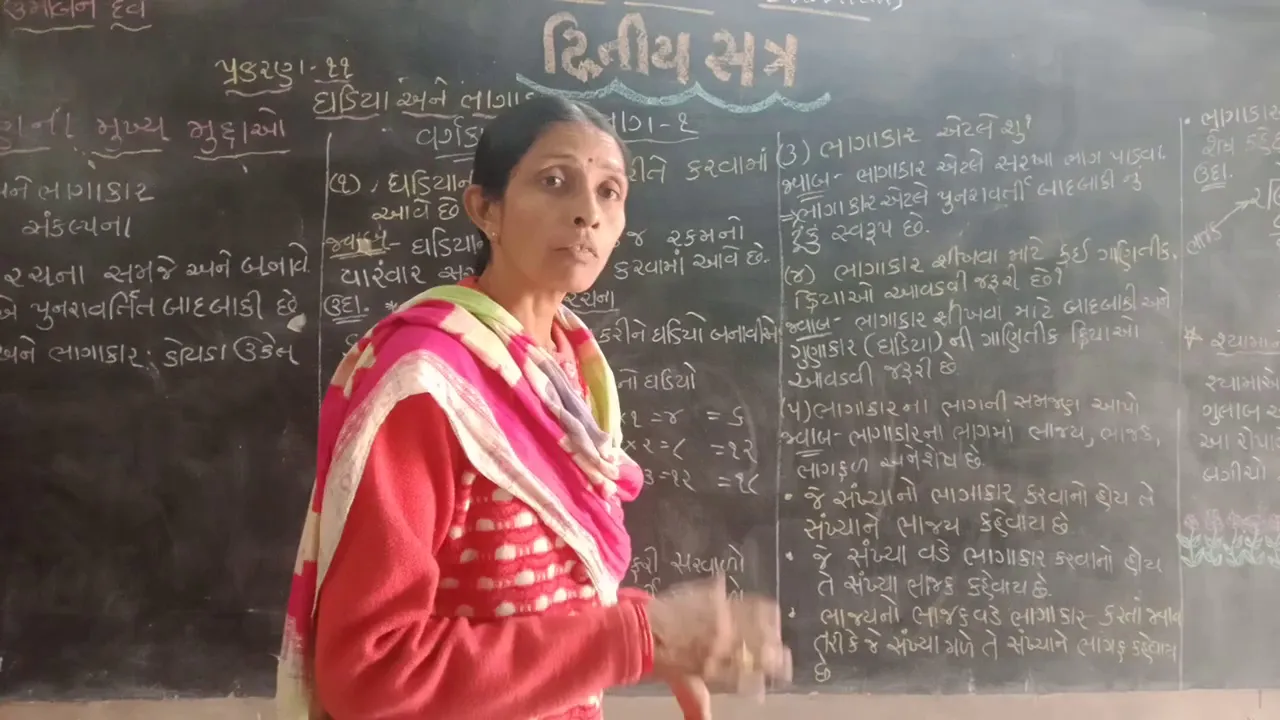 ઉમાબેન દવે
દ્વિતીય સત્ર
પ્રકરણ-૧૧
ઘડિયા અને ભાગાકાર
મુખ્ય મુદ્દાઓ
અને ભાગાકાર
સંકલ્પના
રચના સમજે અને બનાવે
પુનરાવર્તિત બાદબાકી છે
અને ભાગાકાર: કોયડા ઉકેલ
વર્ગકાર્ય ભાગ-૧
(૧) ઘડિયાની રીતે કરવામાં
આવે છે
જવાબ - ઘડિયાની જ રકમનો
વારંવાર કરવામાં આવે છે.
ઉદા. રચના
કરીને ઘડિયો બનાવીએ
નો ઘડિયો
×૧ =૪ = ૬
×૨ =૮ =૧૨
૩ =૧૨ =૧૮
સરવાળો
(૩) ભાગાકાર એટલે શું?
જવાબ - ભાગાકાર એટલે સરખા ભાગ પાડવા.
⇒ ભાગાકાર એટલે પુનરાવર્તી બાદબાકી નુ
ટૂંકુ સ્વરૂપ છે.
(૪) ભાગાકાર શીખવા માટે કઈ ગાણિતીક
ક્રિયાઓ આવડવી જરૂરી છે?
જવાબ - ભાગાકાર શીખવા માટે બાદબાકી અને
ગુણાકાર (ઘડિયા) ની ગાણિતીક ક્રિયાઓ
આવડવી જરૂરી છે.
(૫) ભાગાકારના ભાગની સમજણ આપો
જવાબ - ભાગાકારના ભાગમાં ભાજય, ભાજક,
ભાગફળ અને શેષ છે.
• જે સંખ્યાનો ભાગાકાર કરવાનો હોય તે
સંખ્યાને ભાજય કહેવાય છે
• જે સંખ્યા વડે ભાગાકાર કરવાનો હોય
તે સંખ્યા ભાજક કહેવાય છે.
• ભાજયનો ભાજક વડે ભાગાકાર કરતાં જવાબ
તરીકે જે સંખ્યા મળે તે સંખ્યાને ભાગફળ કહેવાય
છે
• ભાગાકાર
ઉદા.
ભાજક
ગુલાબ
આ રોપા
બગીચો